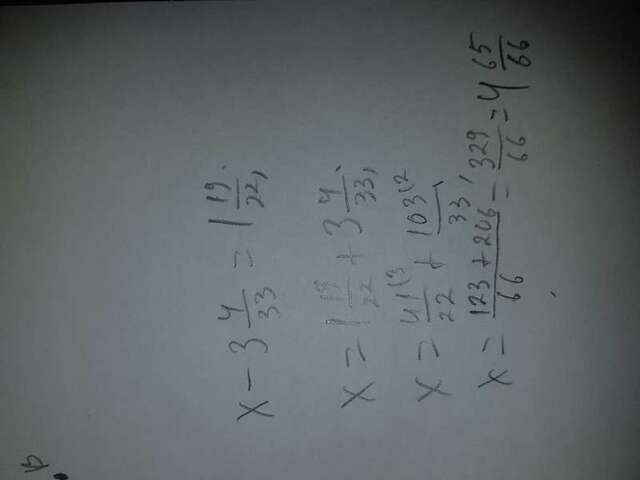 в)
x - 3 4/33 = 1 19/22;
x = 1 19/22 + 3 4/33;
x = 41(3/22 + 103(2/33;
x = 123+206/66 = 329/66 = 4 65/66